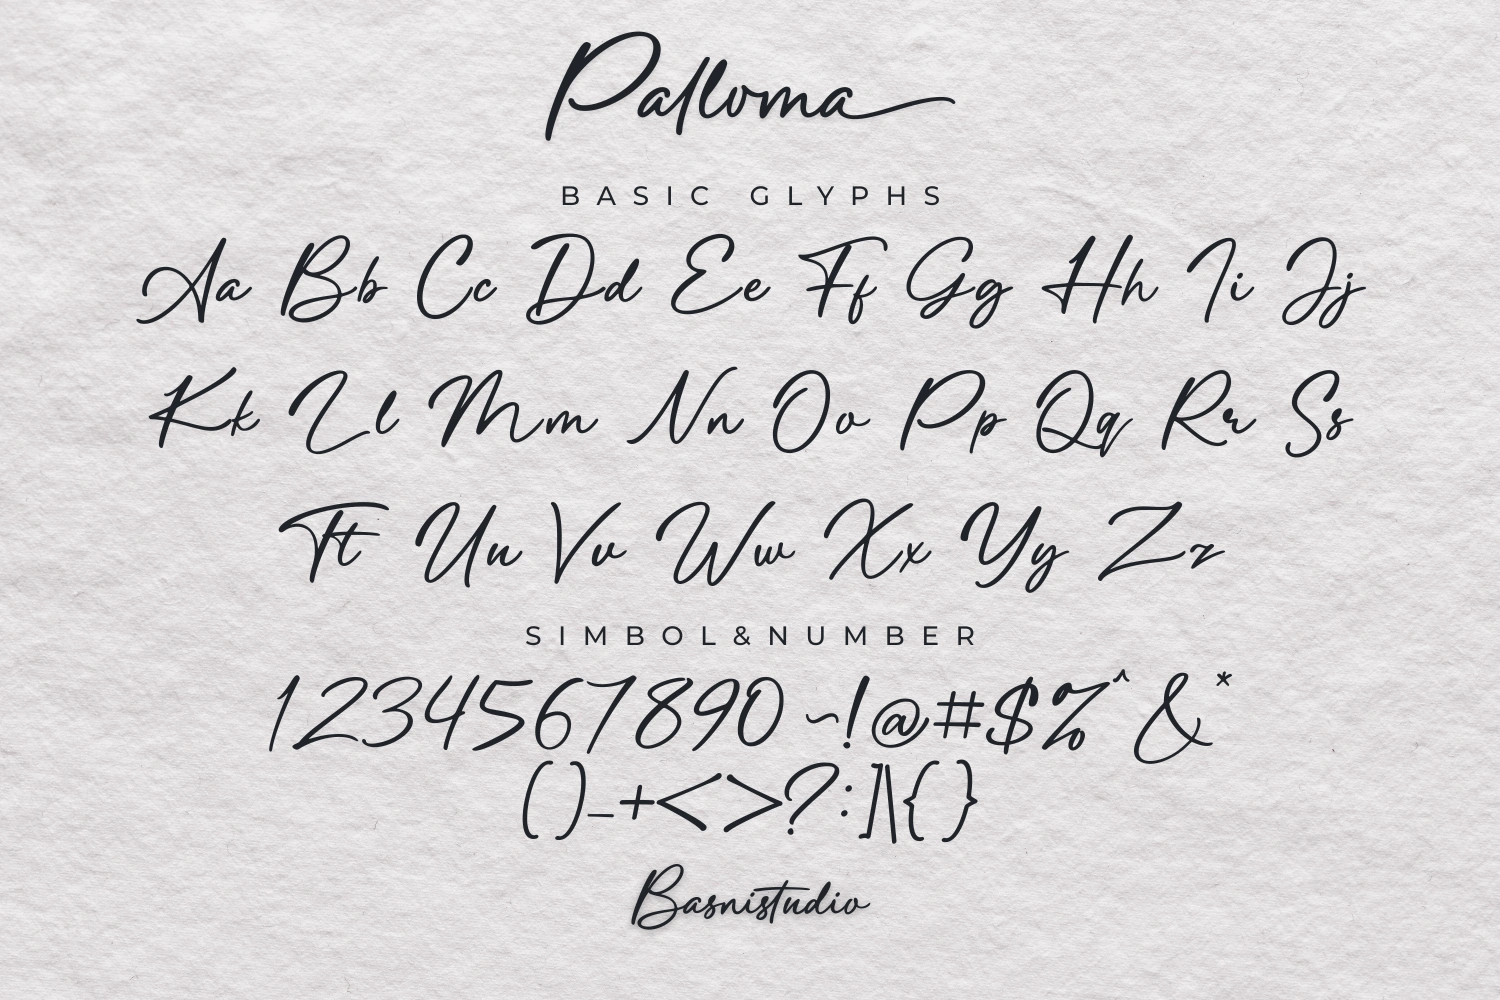 Palloma
BASIC GLYPHS
Aa Bb Cc Dd Ee Ff Gg Hh Ii Jj
Kk Ll Mm Nn Oo Pp Qq Rr Ss
Tt Uu Vv Ww Xx Yy Zz
SIMBOL&NUMBER
1234567890 ~!@#$%^&*
()_+<>?:]|\{}
Basnistudio